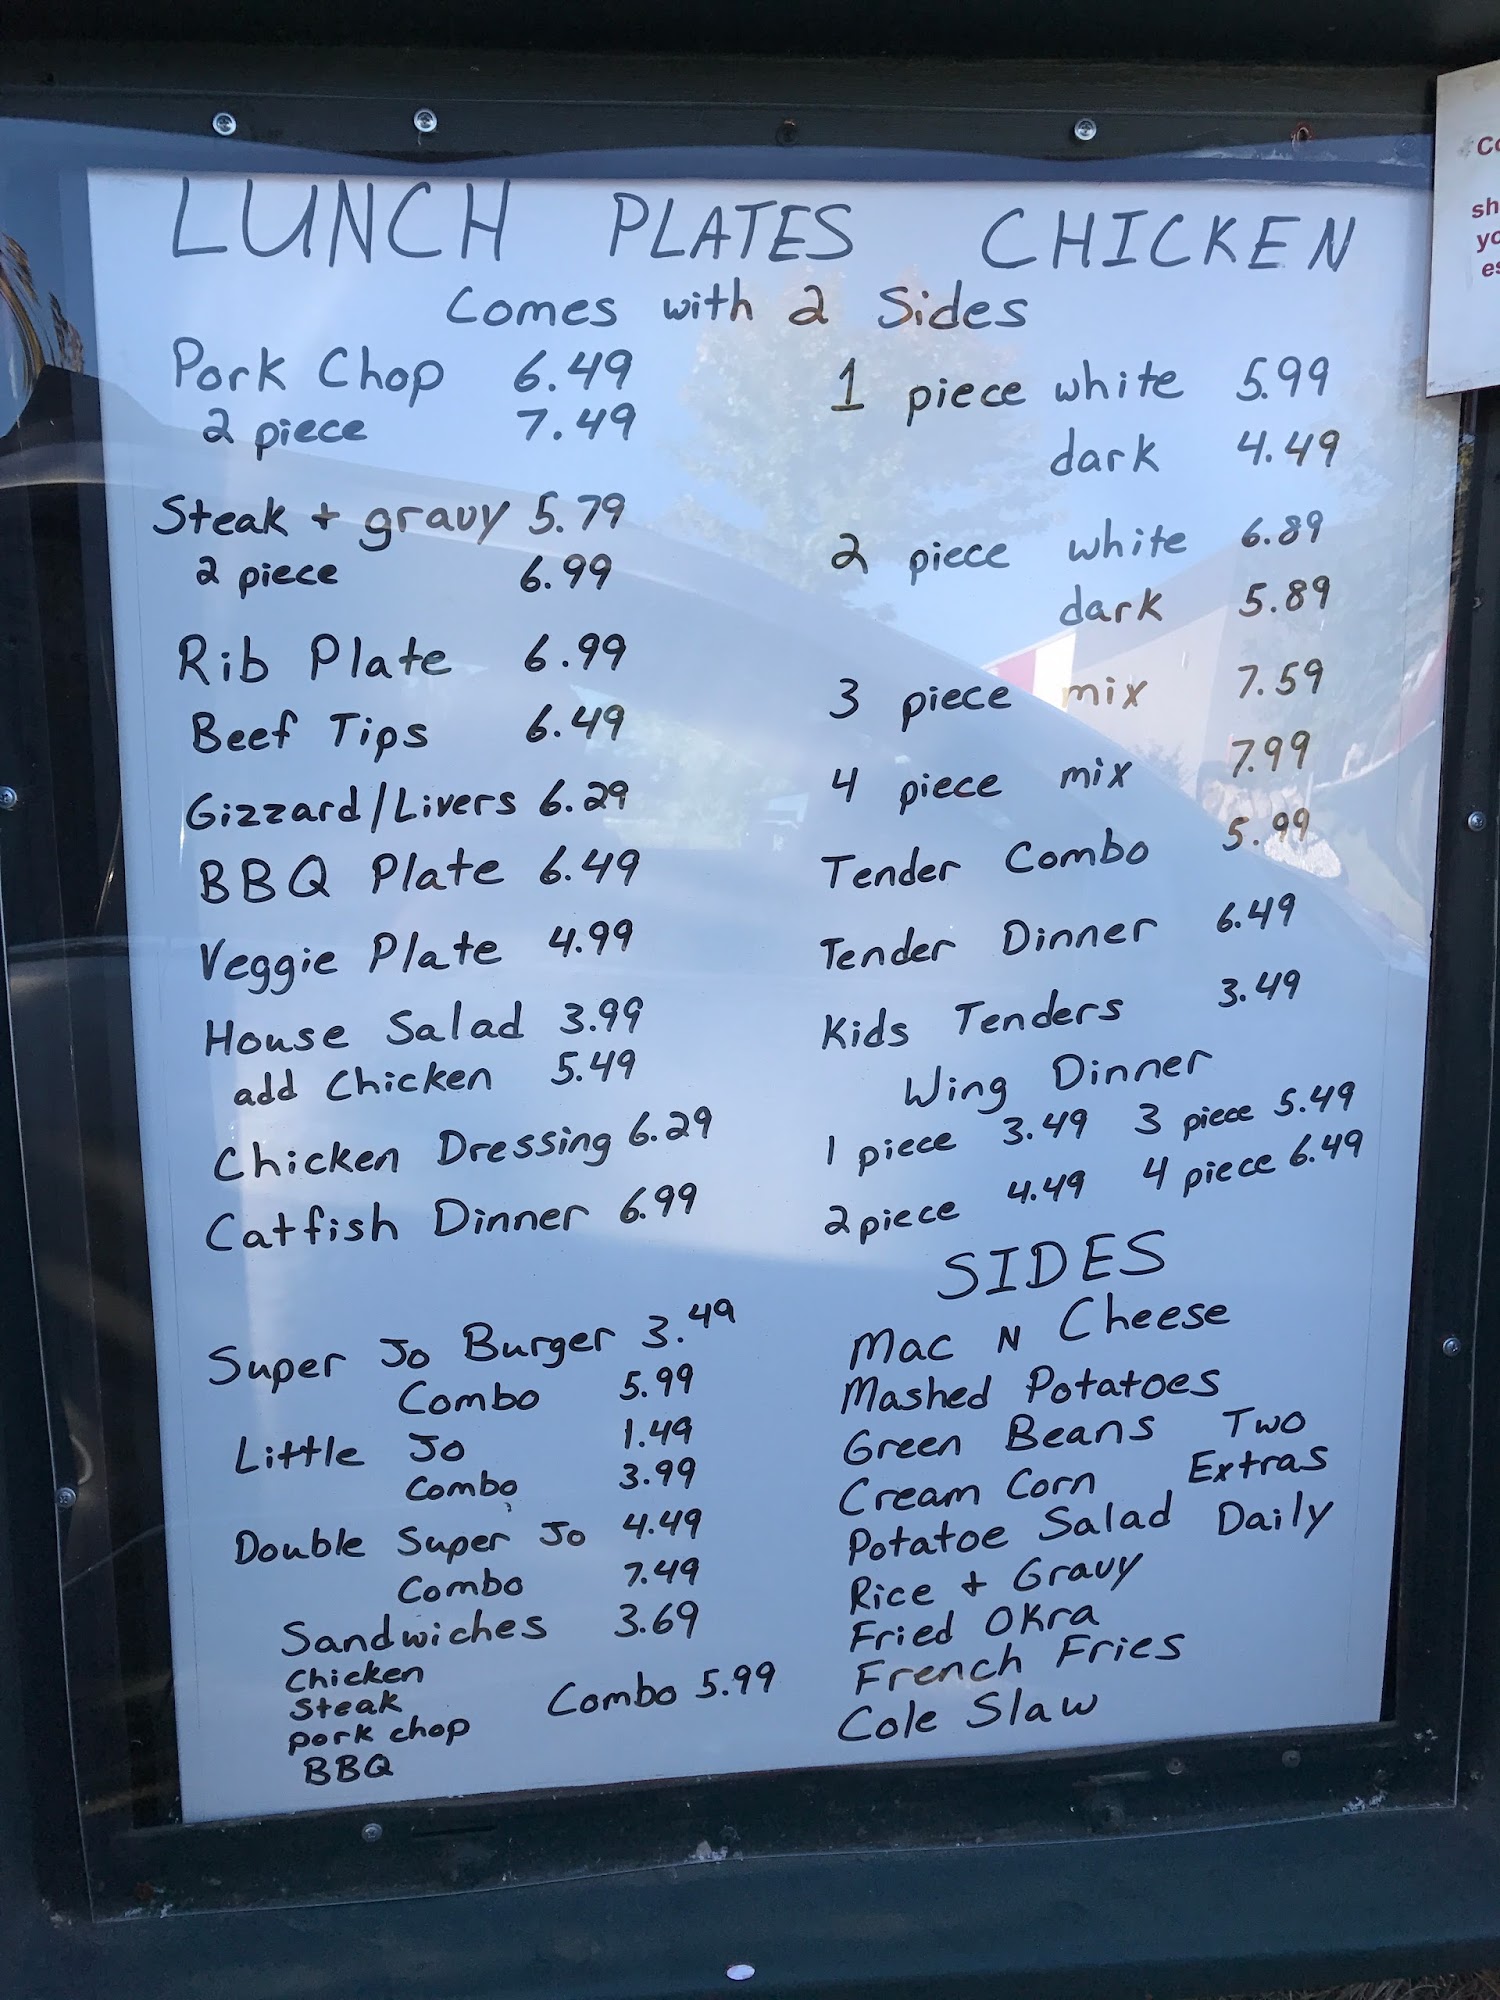 LUNCH PLATES CHICKEN
Comes with 2 Sides
Pork Chop 6.49
2 piece 7.49
Steak + gravy 5.79
2 piece 6.99
Rib Plate 6.99
Beef Tips 6.49
Gizzard/Livers 6.29
BBQ Plate 6.49
Veggie Plate 4.99
House Salad 3.99
add Chicken 5.49
Chicken Dressing 6.29
Catfish Dinner 6.99
Super Jo Burger 3.49
Combo 5.99
Little Jo 1.49
Combo 3.99
Double Super Jo 4.49
Combo 7.49
Sandwiches 3.69
Chicken
Steak
pork chop
BBQ
Combo 5.99
1 piece white 5.99
dark 4.49
2 piece white 6.89
dark 5.89
3 piece mix 7.59
4 piece mix 7.99
Tender Combo 5.99
Tender Dinner 6.49
Kids Tenders 3.49
Wing Dinner
1 piece 3.49 3 piece 5.49
2 piece 4.49 4 piece 6.49
SIDES
Mac N Cheese
Mashed Potatoes
Green Beans
Cream Corn
Potatoe Salad
Rice + Gravy
Fried Okra
French Fries
Cole Slaw
Two
Extras
Daily